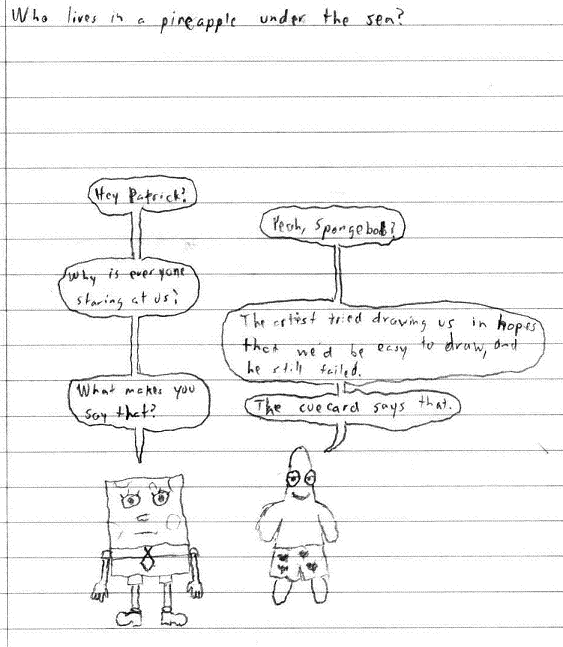 Who lives in a pineapple under the sea?
Hey Patrick?
Yeah, Spongebob?
Why is everyone
staring at us?
The artist tried drawing us in hopes
that we'd be easy to draw, and
he still failed.
What makes you
say that?
The cuecard says that.